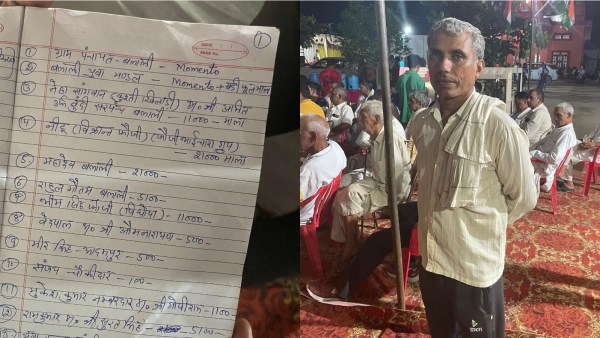 ①
① ग्राम पंचायत - बलाली - Momento
② बलाली युवा मण्डल - Momento + बड़ी फूल माला
③ नेहा सांगवान (कुश्ती खिलाड़ी) पु० श्री अमित
सरपंच बलाली - 11000 - माला
④ नीटू (विक्रान्त फौजी) (फौजी भाईचारा ग्रुप)
- 21000 माला
⑤ महादेव बलाली - 21000 -
⑥ राहुल गौतम बलाली - 5100 -
⑦ भीम सिंह फौजी - 11000 -
⑧ वेदपाल पु० श्री ओमनारायण - 500 -
⑨ मीर सिंह - आदमपुर - 500 -
⑩ संजय चौकीदार - 100 -
⑪ मुकेश कुमार नम्बरदार पु० श्री गोपीराम - 1100
⑫ रामकुमार पु० श्री सिंह - 5100 -